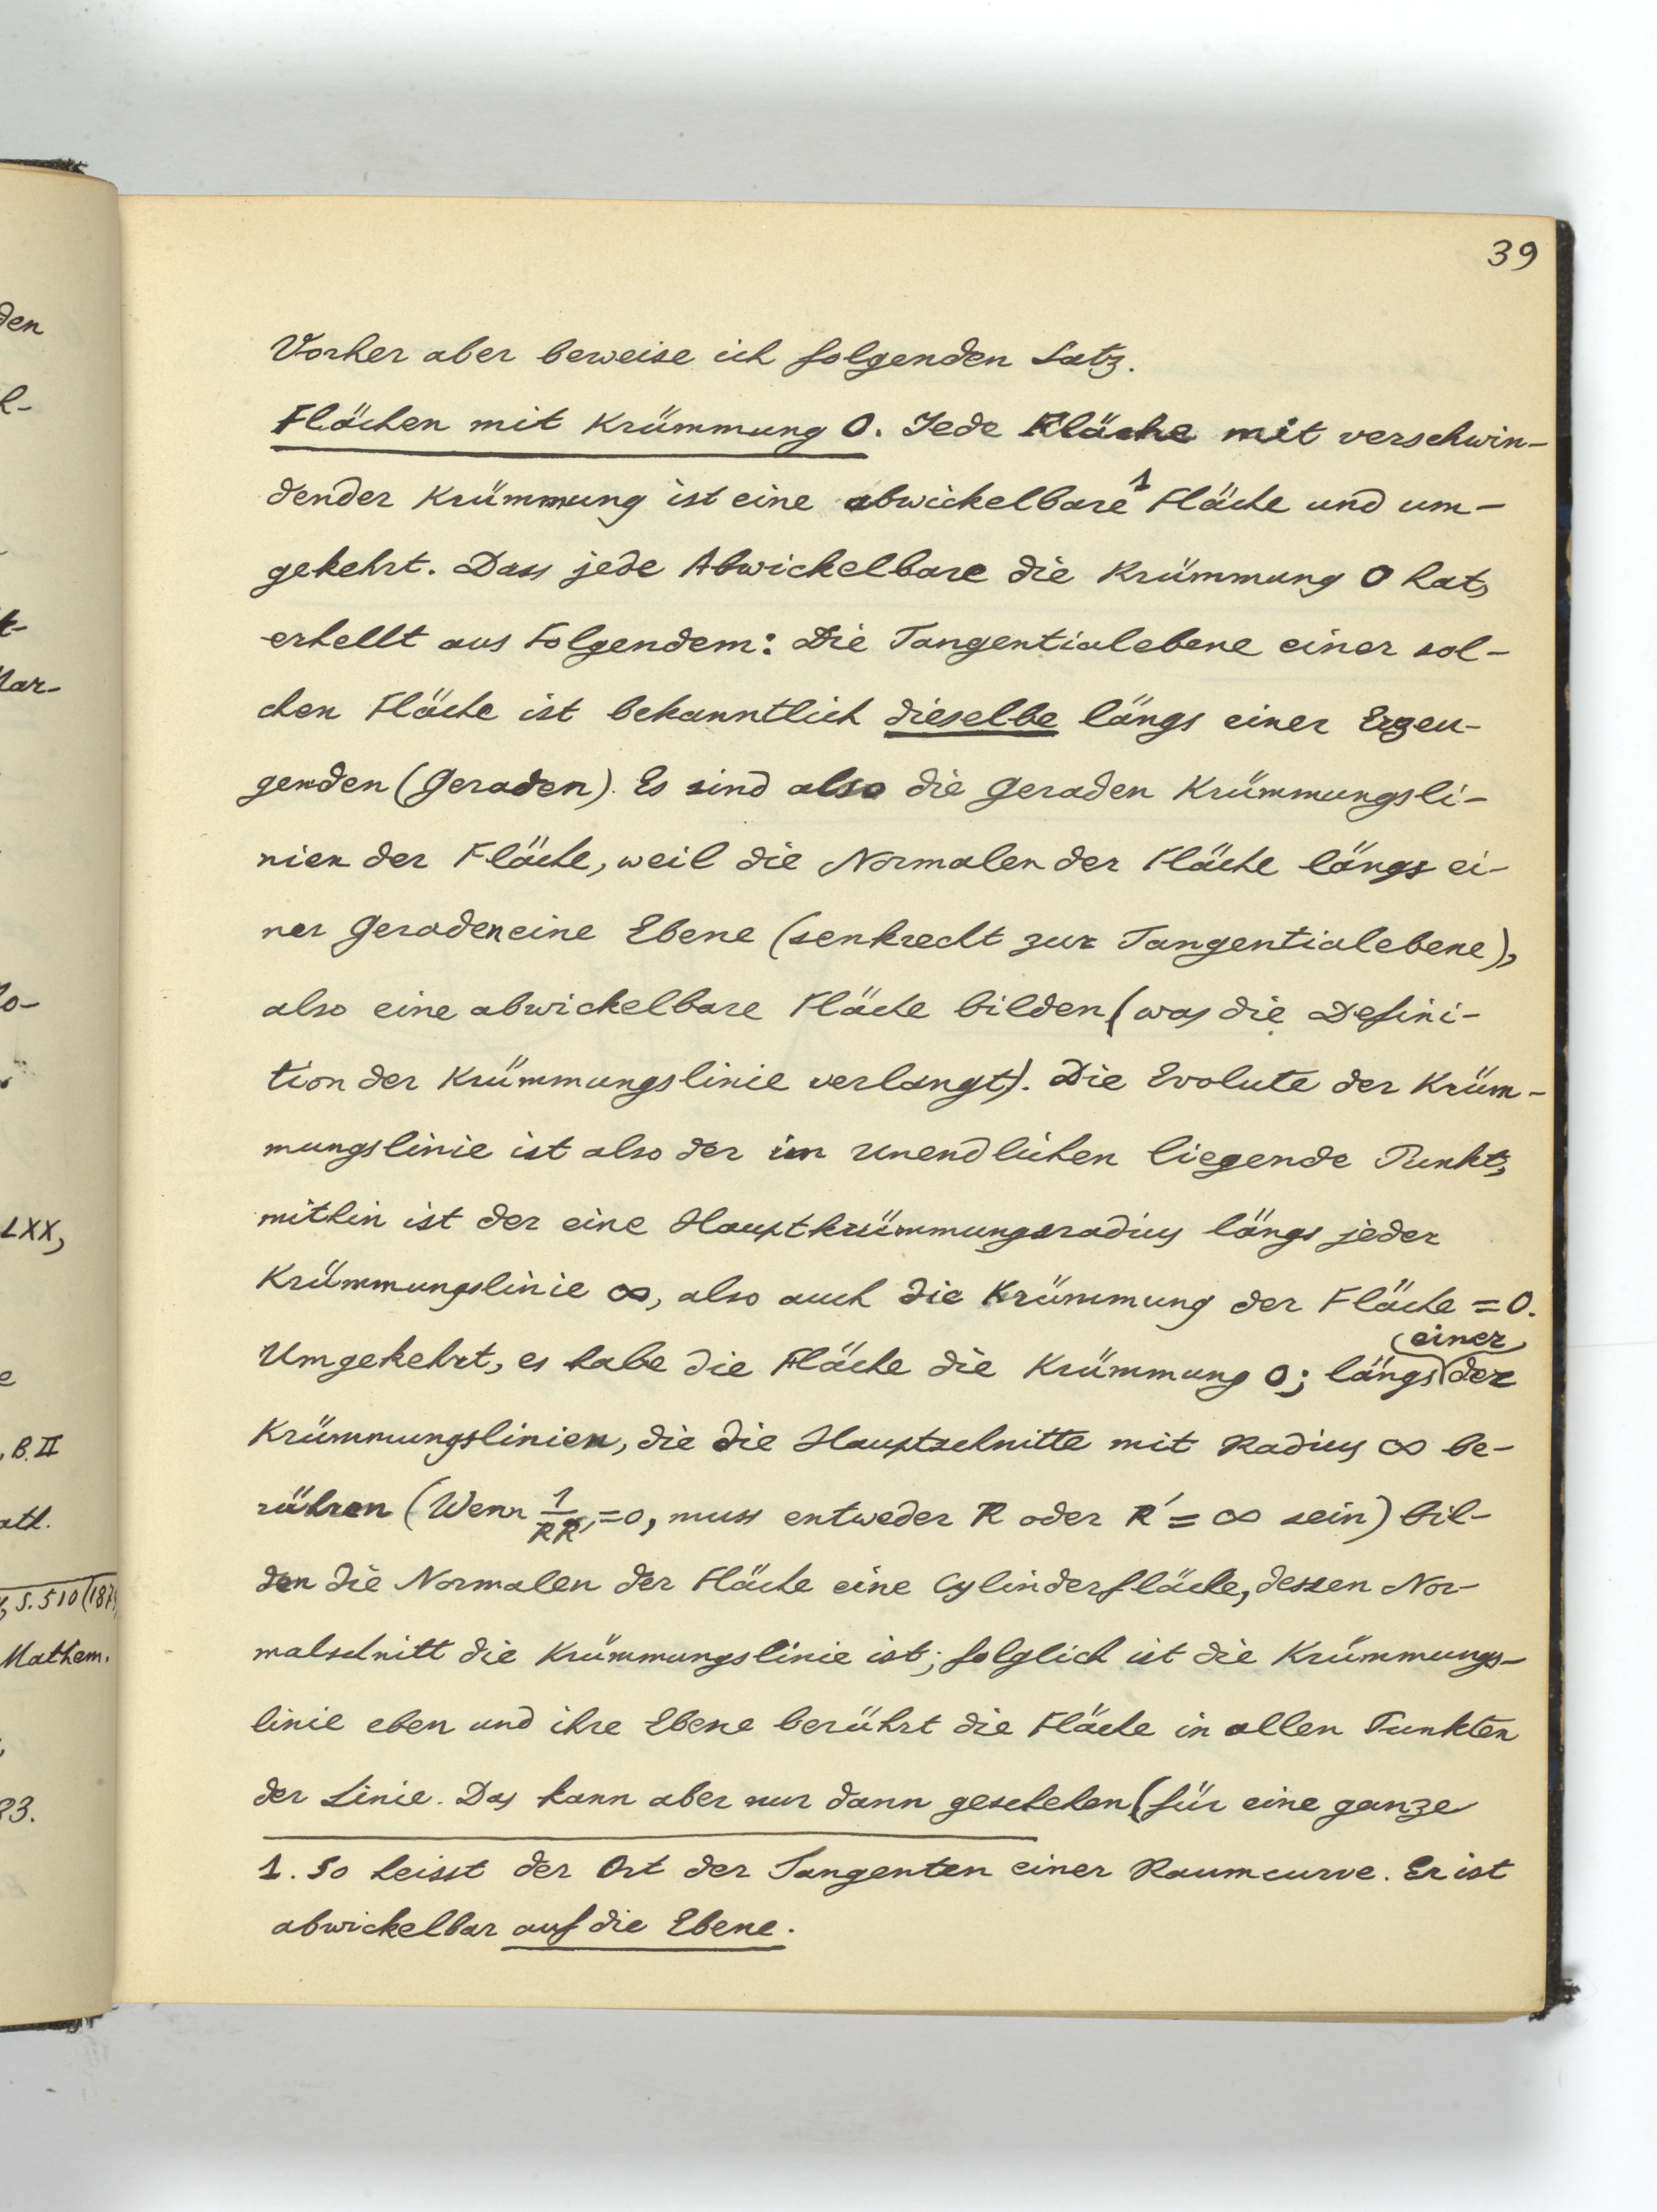 39
Vorher aber beweise ich folgenden Satz.
Flächen mit Krümmung 0. Jede Fläche mit verschwin-
dender Krümmung ist eine abwickelbare¹ Fläche und um-
gekehrt. Dass jede Abwickelbare die Krümmung 0 hat,
erhellt aus Folgendem: Die Tangentialebene einer sol-
chen Fläche ist bekanntlich dieselbe längs einer Erzeu-
genden (Geraden). Es sind also die Geraden Krümmungsli-
nien der Fläche, weil die Normalen der Fläche längs ei-
ner Geraden eine Ebene (senkrecht zur Tangentialebene),
also eine abwickelbare Fläche bilden (was die Defini-
tion der Krümmungslinie verlangt). Die Evolute der Krüm-
mungslinie ist also der im Unendlichen liegende Punkt,
mithin ist der eine Hauptkrümmungsradius längs jeder
Krümmungslinie ∞, also auch die Krümmung der Fläche = 0.
Umgekehrt, es habe die Fläche die Krümmung 0; längs einer der
Krümmungslinien, die die Hauptschnitte mit Radius ∞ be-
rühren (Wenn 1/RR' = 0, muss entweder R oder R' = ∞ sein) bil-
den die Normalen der Fläche eine Cylinderfläche, dessen Nor-
malschnitt die Krümmungslinie ist; folglich ist die Krümmungs-
linie eben und ihre Ebene berührt die Fläche in allen Punkten
der Linie. Das kann aber nur dann geschehen (für eine ganze
1. So heisst der Ort der Tangenten einer Raumcurve. Er ist
abwickelbar auf die Ebene.
den
LXX,
, B. II
ath.
, S. 510 (187
Mathem.
83.